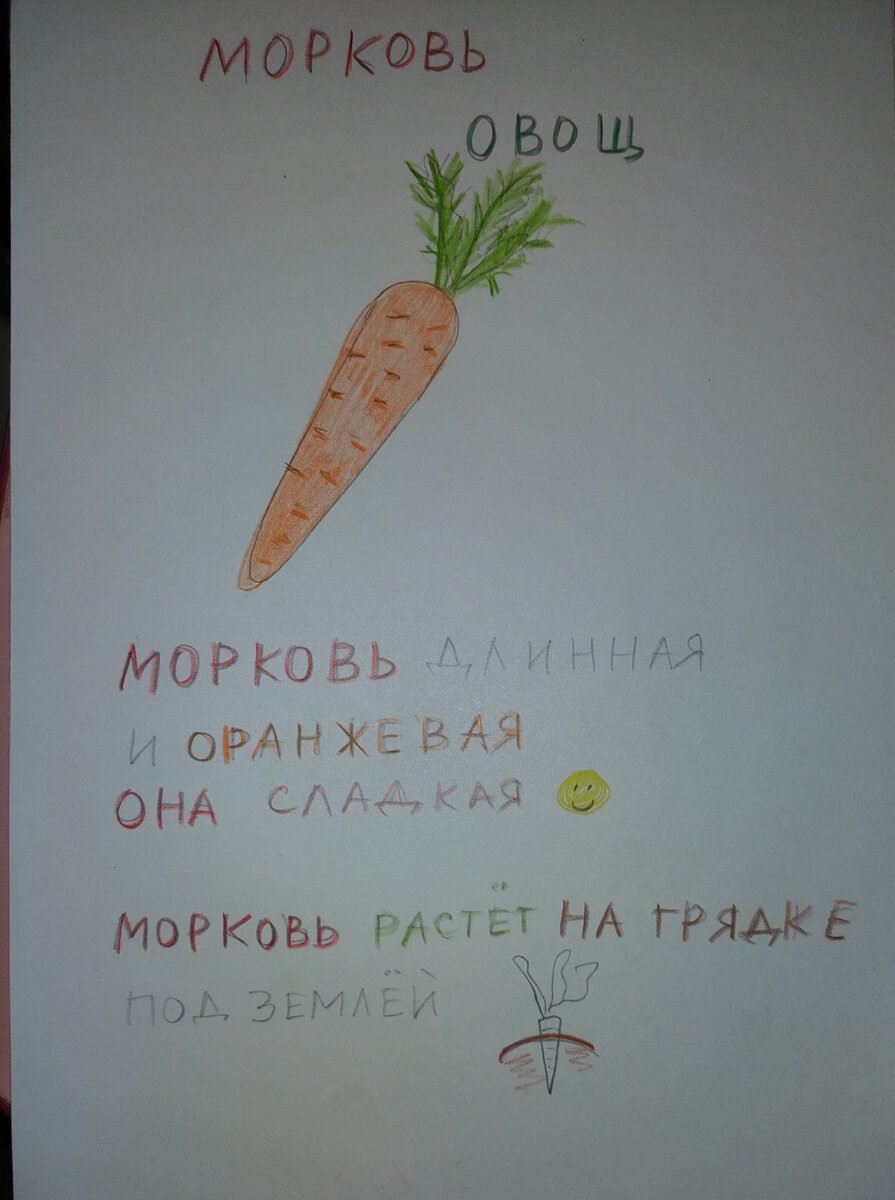 МОРКОВЬ
ОВОЩ
МОРКОВЬ ДЛИННАЯ
И ОРАНЖЕВАЯ
ОНА СЛАДКАЯ
МОРКОВЬ РАСТЁТ НА ГРЯДКЕ
ПОД ЗЕМЛЁЙ